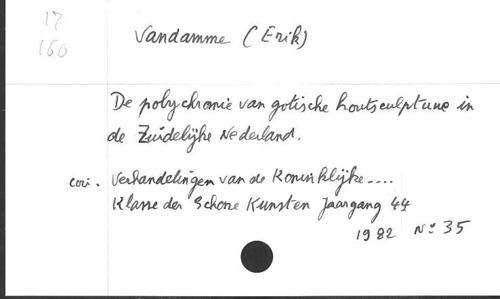 17
160
Vandamme (Erik)
De polychromie van gotische houtsculptuur in
de Zuidelijke Nederland.
cori. Verhandelingen van de Koninklijke ----
Klasse der Schone Kunsten Jaargang 44
1982 No 35